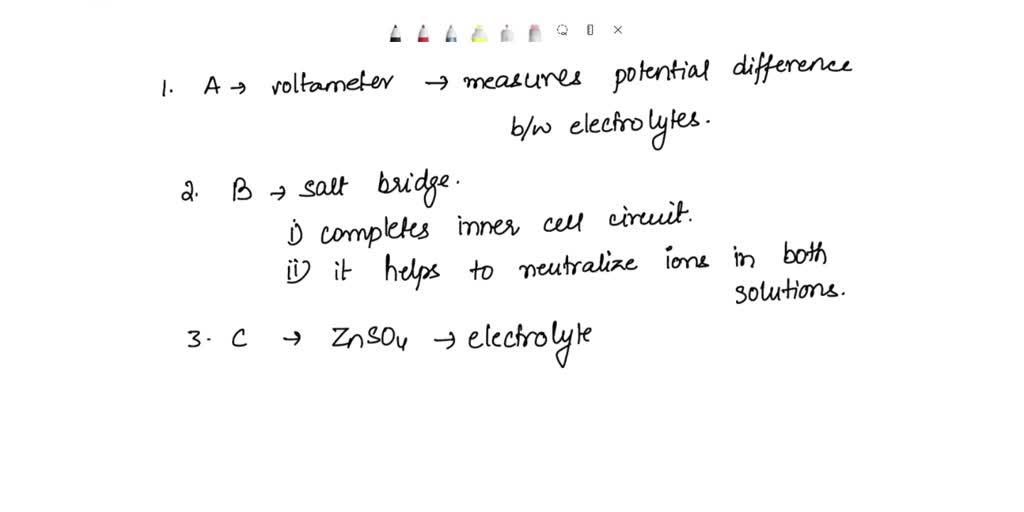 1. A → voltameter → measures potential difference
b/w electrolytes.
2. B → salt bridge.
i) completes inner cell circuit.
ii) it helps to neutralize ions in both
solutions.
3. C → ZnSO4 → electrolyte